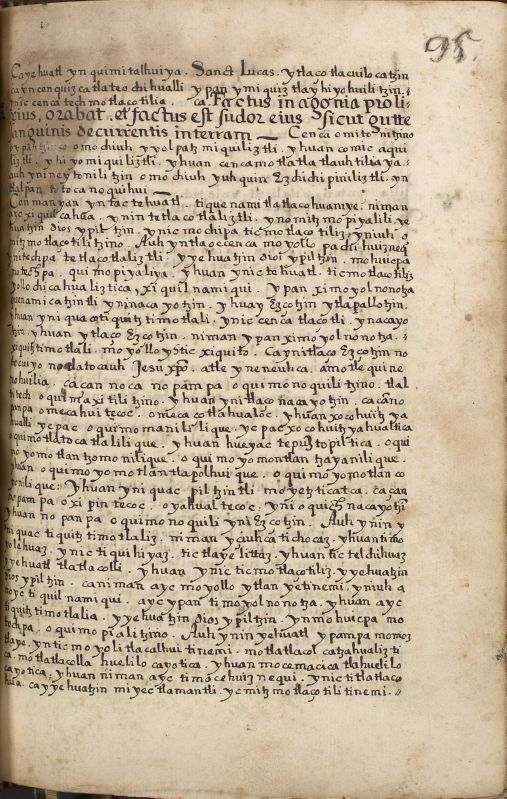 95.
Ca yehuatl yn quimitalhuiya. Sanct Lucas. ytlaço tlacuilo catzin
ca yn cenquizca tlateochihualli ypan ymiquiztlayhiyohuiliztzin.
ynic cenca techmotlaçotilia. ca. Factus in agonia proli-
xius, orabat. et factus est sudor eius Sicut gutte
sanguinis decurrentis interram — Cenca omitonitzino
omochiuh yyolpatzmiquiliztli. yhuan comic aqui
liztli. yhiyomiquiliztli. yhuan cenca motlatlatlauhtilia ya.
auh yn ineytoniltzin omochiuh yuhquin Ezchichipiniliztli. yn
tlalpan totoca no quihui
Cen man yan yn tac tehuatl. tiquenami tlatlacohuaniye. niman
ayc xiquilcahua. ynin tetlaçotlaliztli. yno mitzmopiyalili ye
huatzin Dios ypiltzin. ynic mochipa ticmotlaçotiliz. yniuh o
mitzmotlaçotilitzino. Auh yntla occenca moyollo pachihuiznequi
ynitechpa tetlaçotlaliztli. yyehuatzin dios ypiltzin. mohuicpa
motechpa quimopiyaliya. yhuan ynic tehuatl. ticmotlaçotiliz
yollochicahualiztica, xiquilnamiqui. ypan ximoyolnonotza
quenamicatzintli yninacayotzin. yhuan yezcotzin ytlapallotzin.
yhuan yniquac otiquitztimotlali. ynic cenca tlaçotli. ynacayo
tzin. yhuan ytlaço Ezcotzin. niman ypan ximoyolnonotza.
xiquitztimotlali. moyolloytic xiquito. Ca ynitlaço Ezcotzin no
tecuiyo notlatocauh Jesu xpo. atle yneneuhca. amo tle quine
nehuilia. ca can noca nopampa oquimonoquilitzino. tlal
titech oquimaxitilitzino. yhuan ynitlaço nacayotzin. ca çano
panpa omecahuitecoc. omecacotlahualoc. yhuan xocohuitz ya
hualli ycpac oquimomanililique. ycpac xocohuitzyahualtica
oquimotlatocatlalilique. yhuan hueyac tepuztopiltica. oqui
moyomotlantzomonilique. oquimoyomontlantzayanilique.
yhuan oquimoyomotlantlapolhuique. oquimoyomotlanco
yonilique: yhuan yniquac piltzintli moyetzticatca. ca çan
nopampa oxipintecoc. oyahualtecoc. yni oquichnacayotzin
yhuan nopanpa oquimonoquili yni Ezcotzin. Auh ynin y
niquac tiquitztimotlaliz. niman ycuhca tichocaz. yhuan timo
yolehuaz. ynic tiquihiyaz. tictlayelittaz. yhuan tictelchihuaz
yyehuatl tlatlacolli. yhuan ynic ticmotlaçotiliz. yyehuatzin
Dios ypiltzin. ca niman ayc moyollo ytlan yetinemi. yniuh a
noyc tiquilnamiqui. ayc ypan timoyolnonotza. yhuan ayc
tiquitztimotlalia. yyehuatzin Dios ypiltzin. yn mohuicpa mo
techpa. oquimopialitzino. Auh ynin yehuatl ypampa momoz
tlaye. yn ticmoyolitlacalhuitinemi. motlatlacolcatzahualizti
ca. motlatlacolla huelilocayotica. yhuan mocemacica tlahuelilo
cayotica. yhuan niman ayc timocehuiznequi. ynic titlatlaco
hua. ca yyehuatzin miyectlamantli. yc mitzmotlaçotilitinemi.